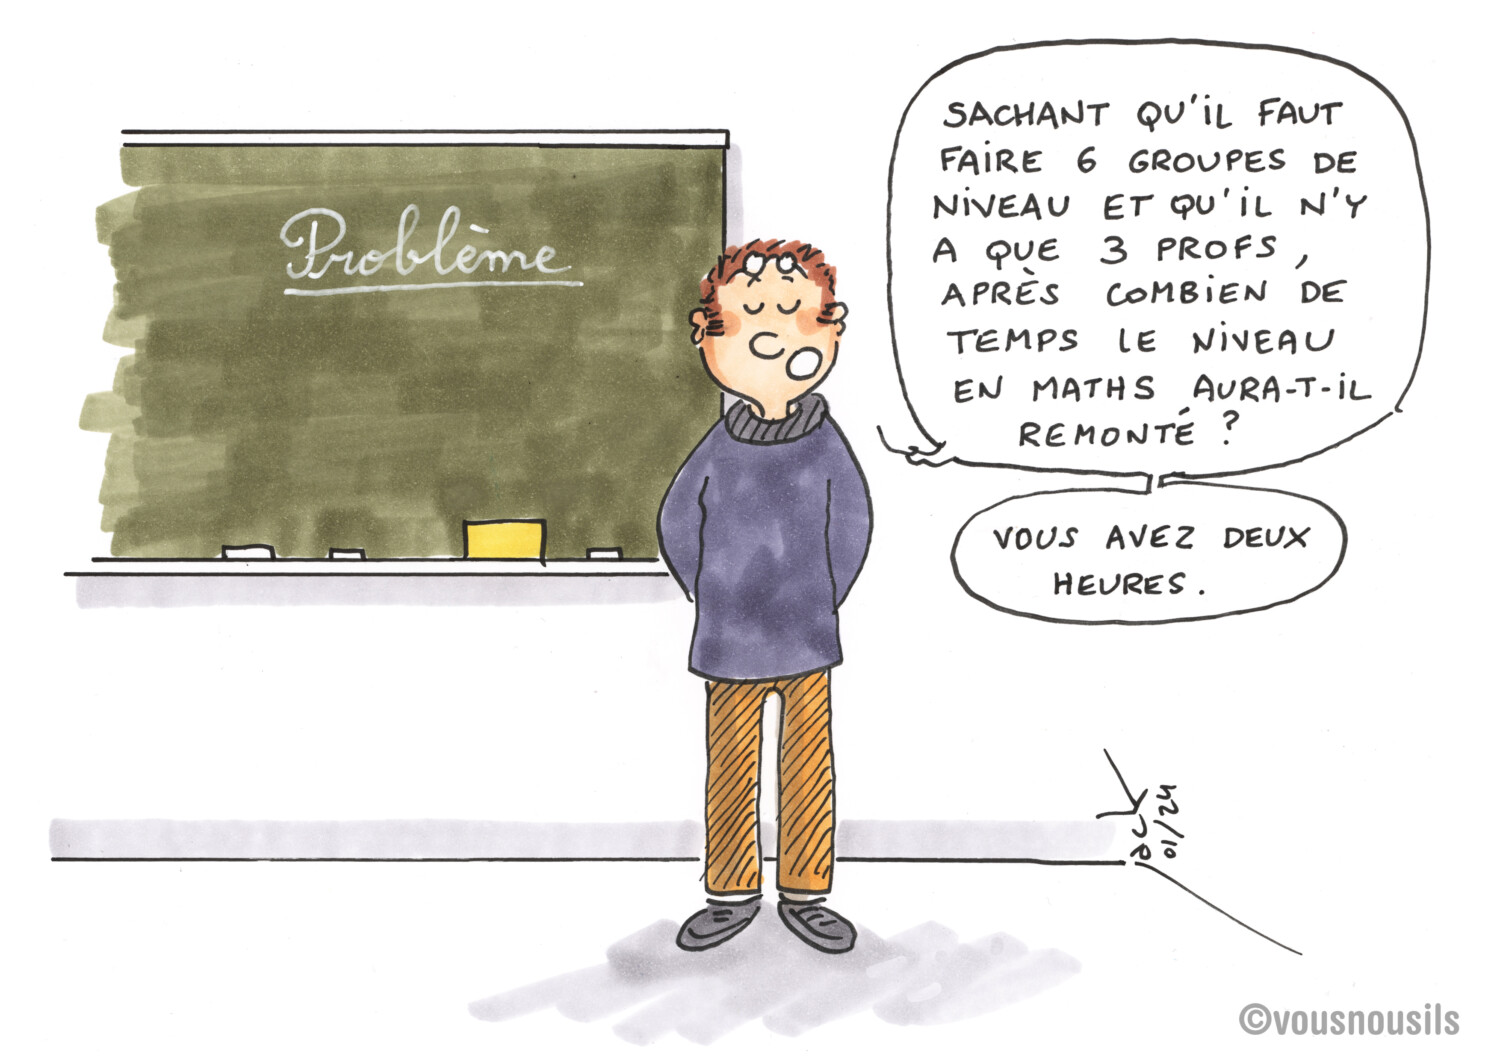 Problème
SACHANT QU'IL FAUT
FAIRE 6 GROUPES DE
NIVEAU ET QU'IL N'Y
A QUE 3 PROFS,
APRÈS COMBIEN DE
TEMPS LE NIVEAU
EN MATHS AURA-T-IL
REMONTÉ ?
VOUS AVEZ DEUX
HEURES.
01/24
©vousnousils